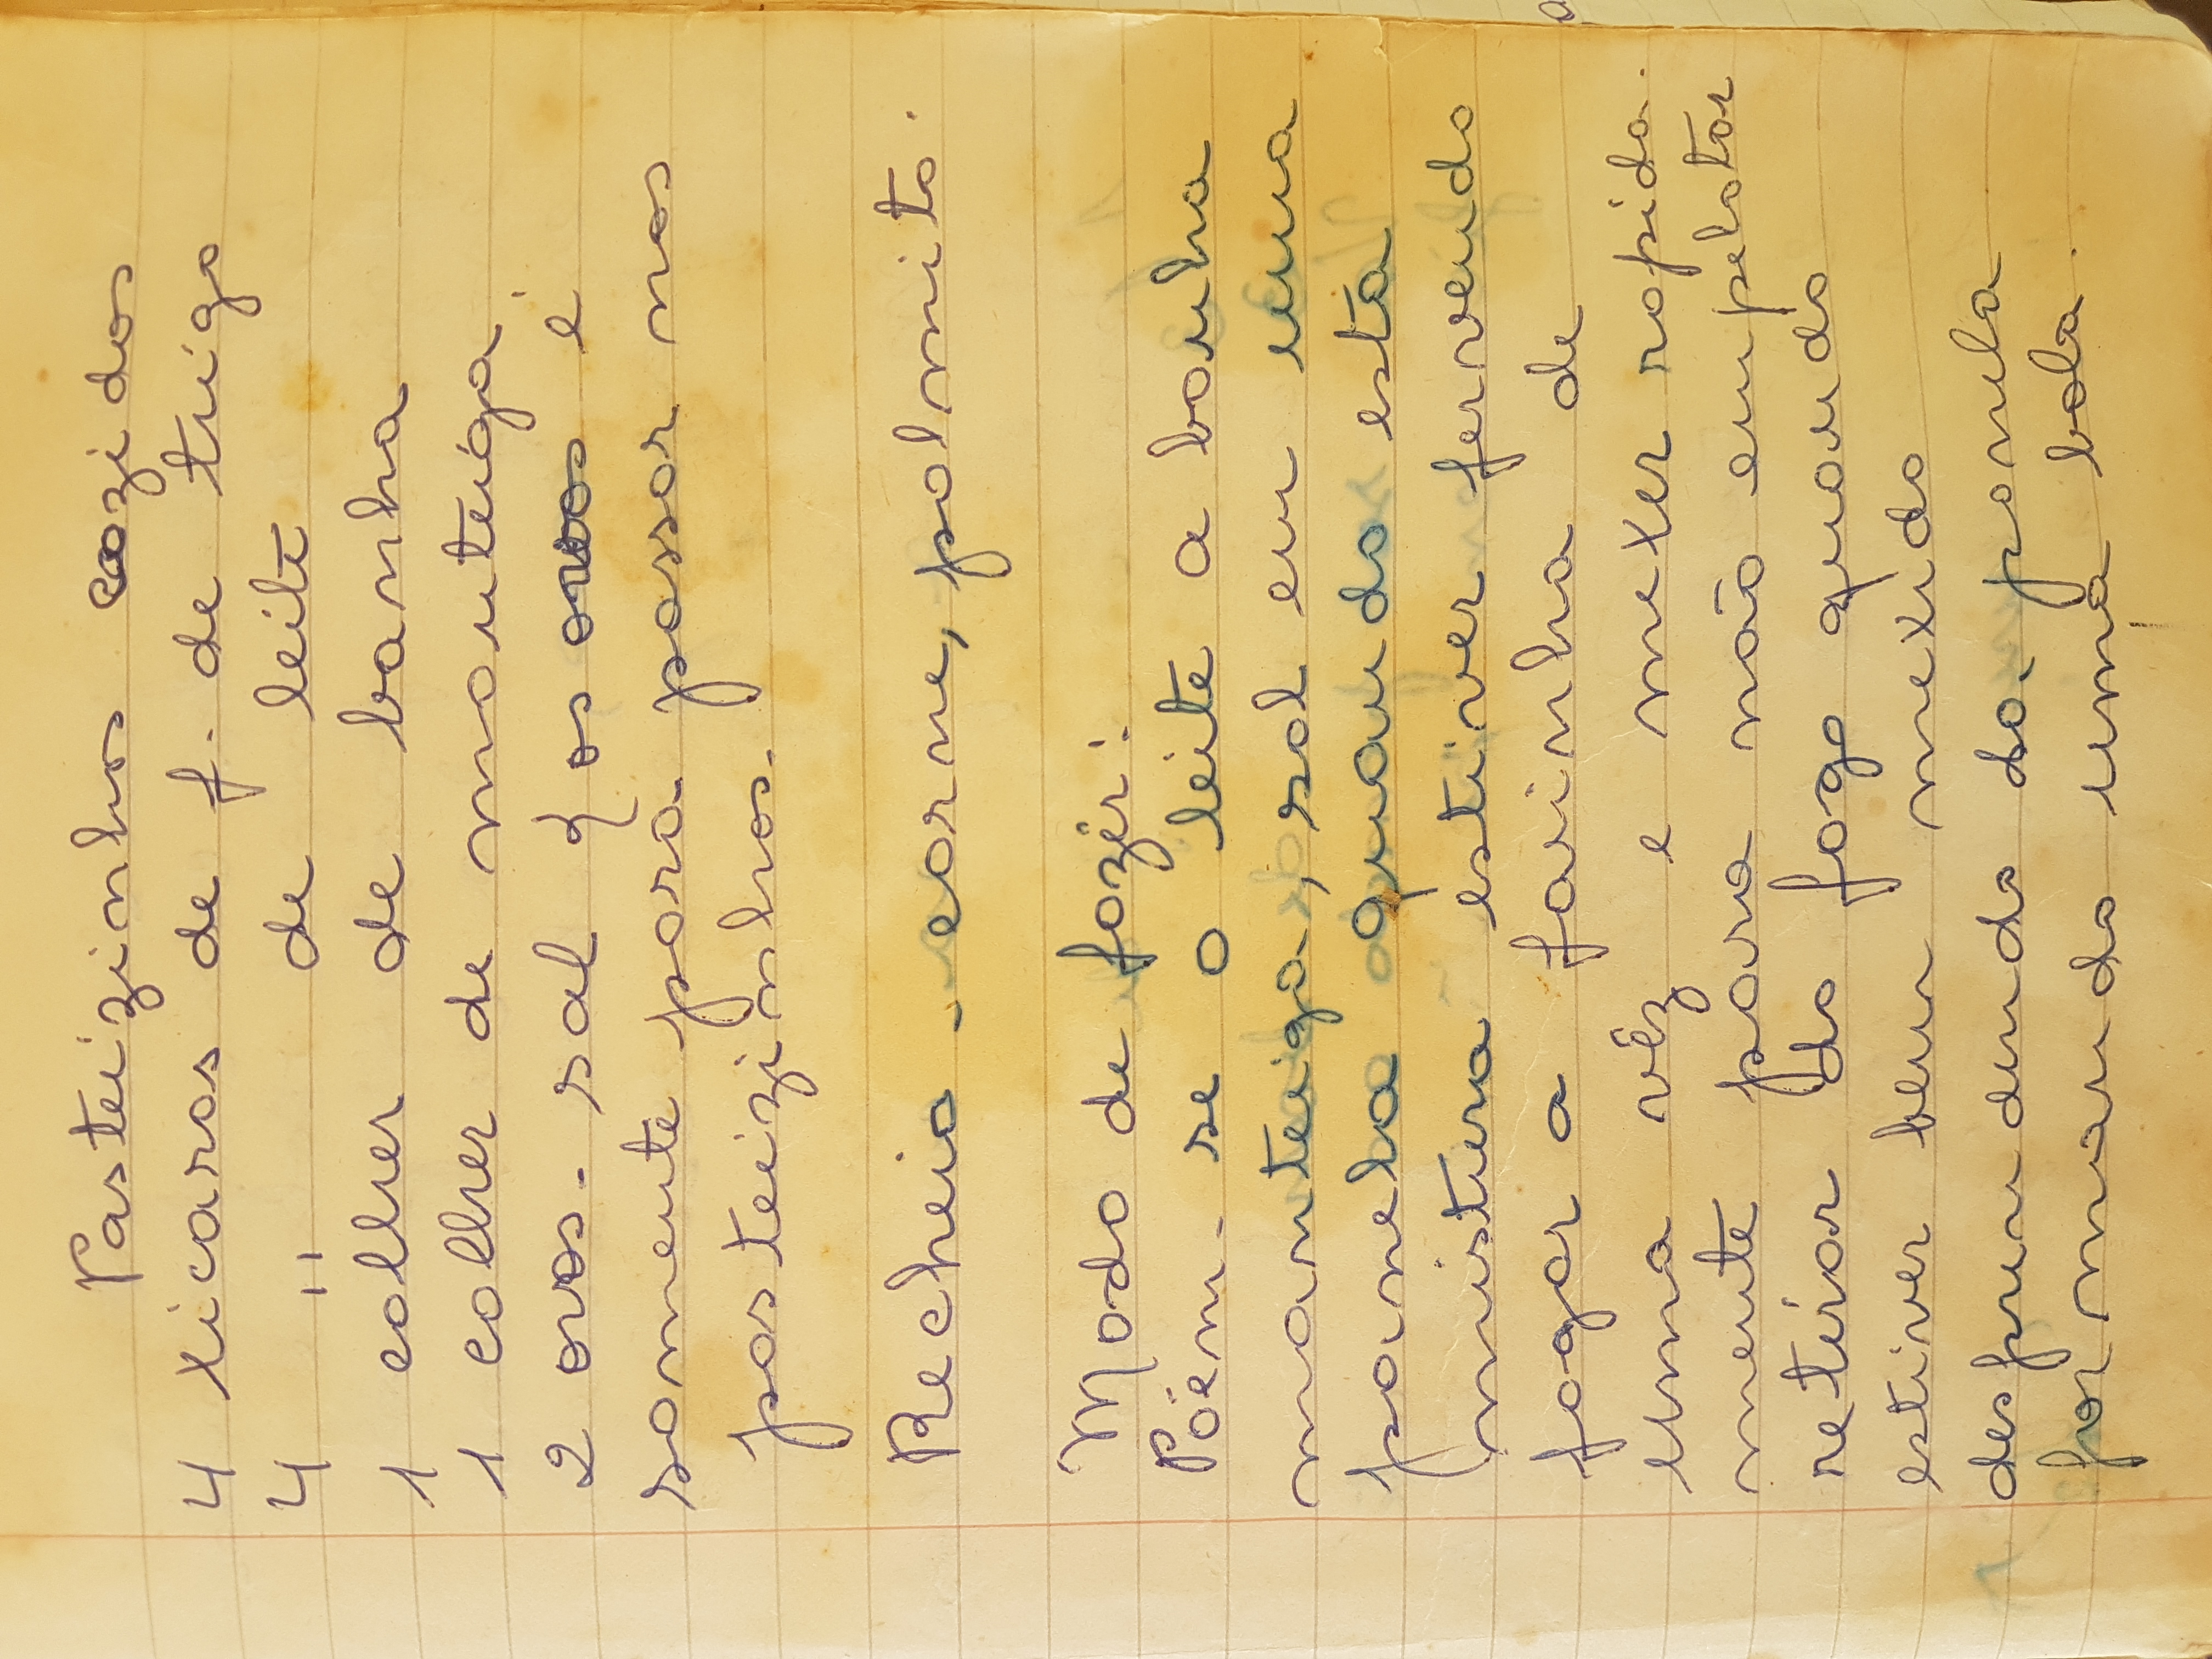 Pasteizinhos cozidos
4 xicaras de f. de trigo
4 " de leite
1 colher de banha
1 colher de manteiga
2 ovos - sal { os ovos é
somente para passar nos
pasteizinhos.
Recheio - carne, palmito.
Modo de fazêr:
Põem-se o leite a banha
manteiga, sal em uma
panela quando esta
mistura estiver fervendo
jogar a farinha de
uma vêz e mexer rapida-
mente para não empelotar
retirar do fogo quando
estiver bem mexido
desprendendo da panela
formando uma bola.